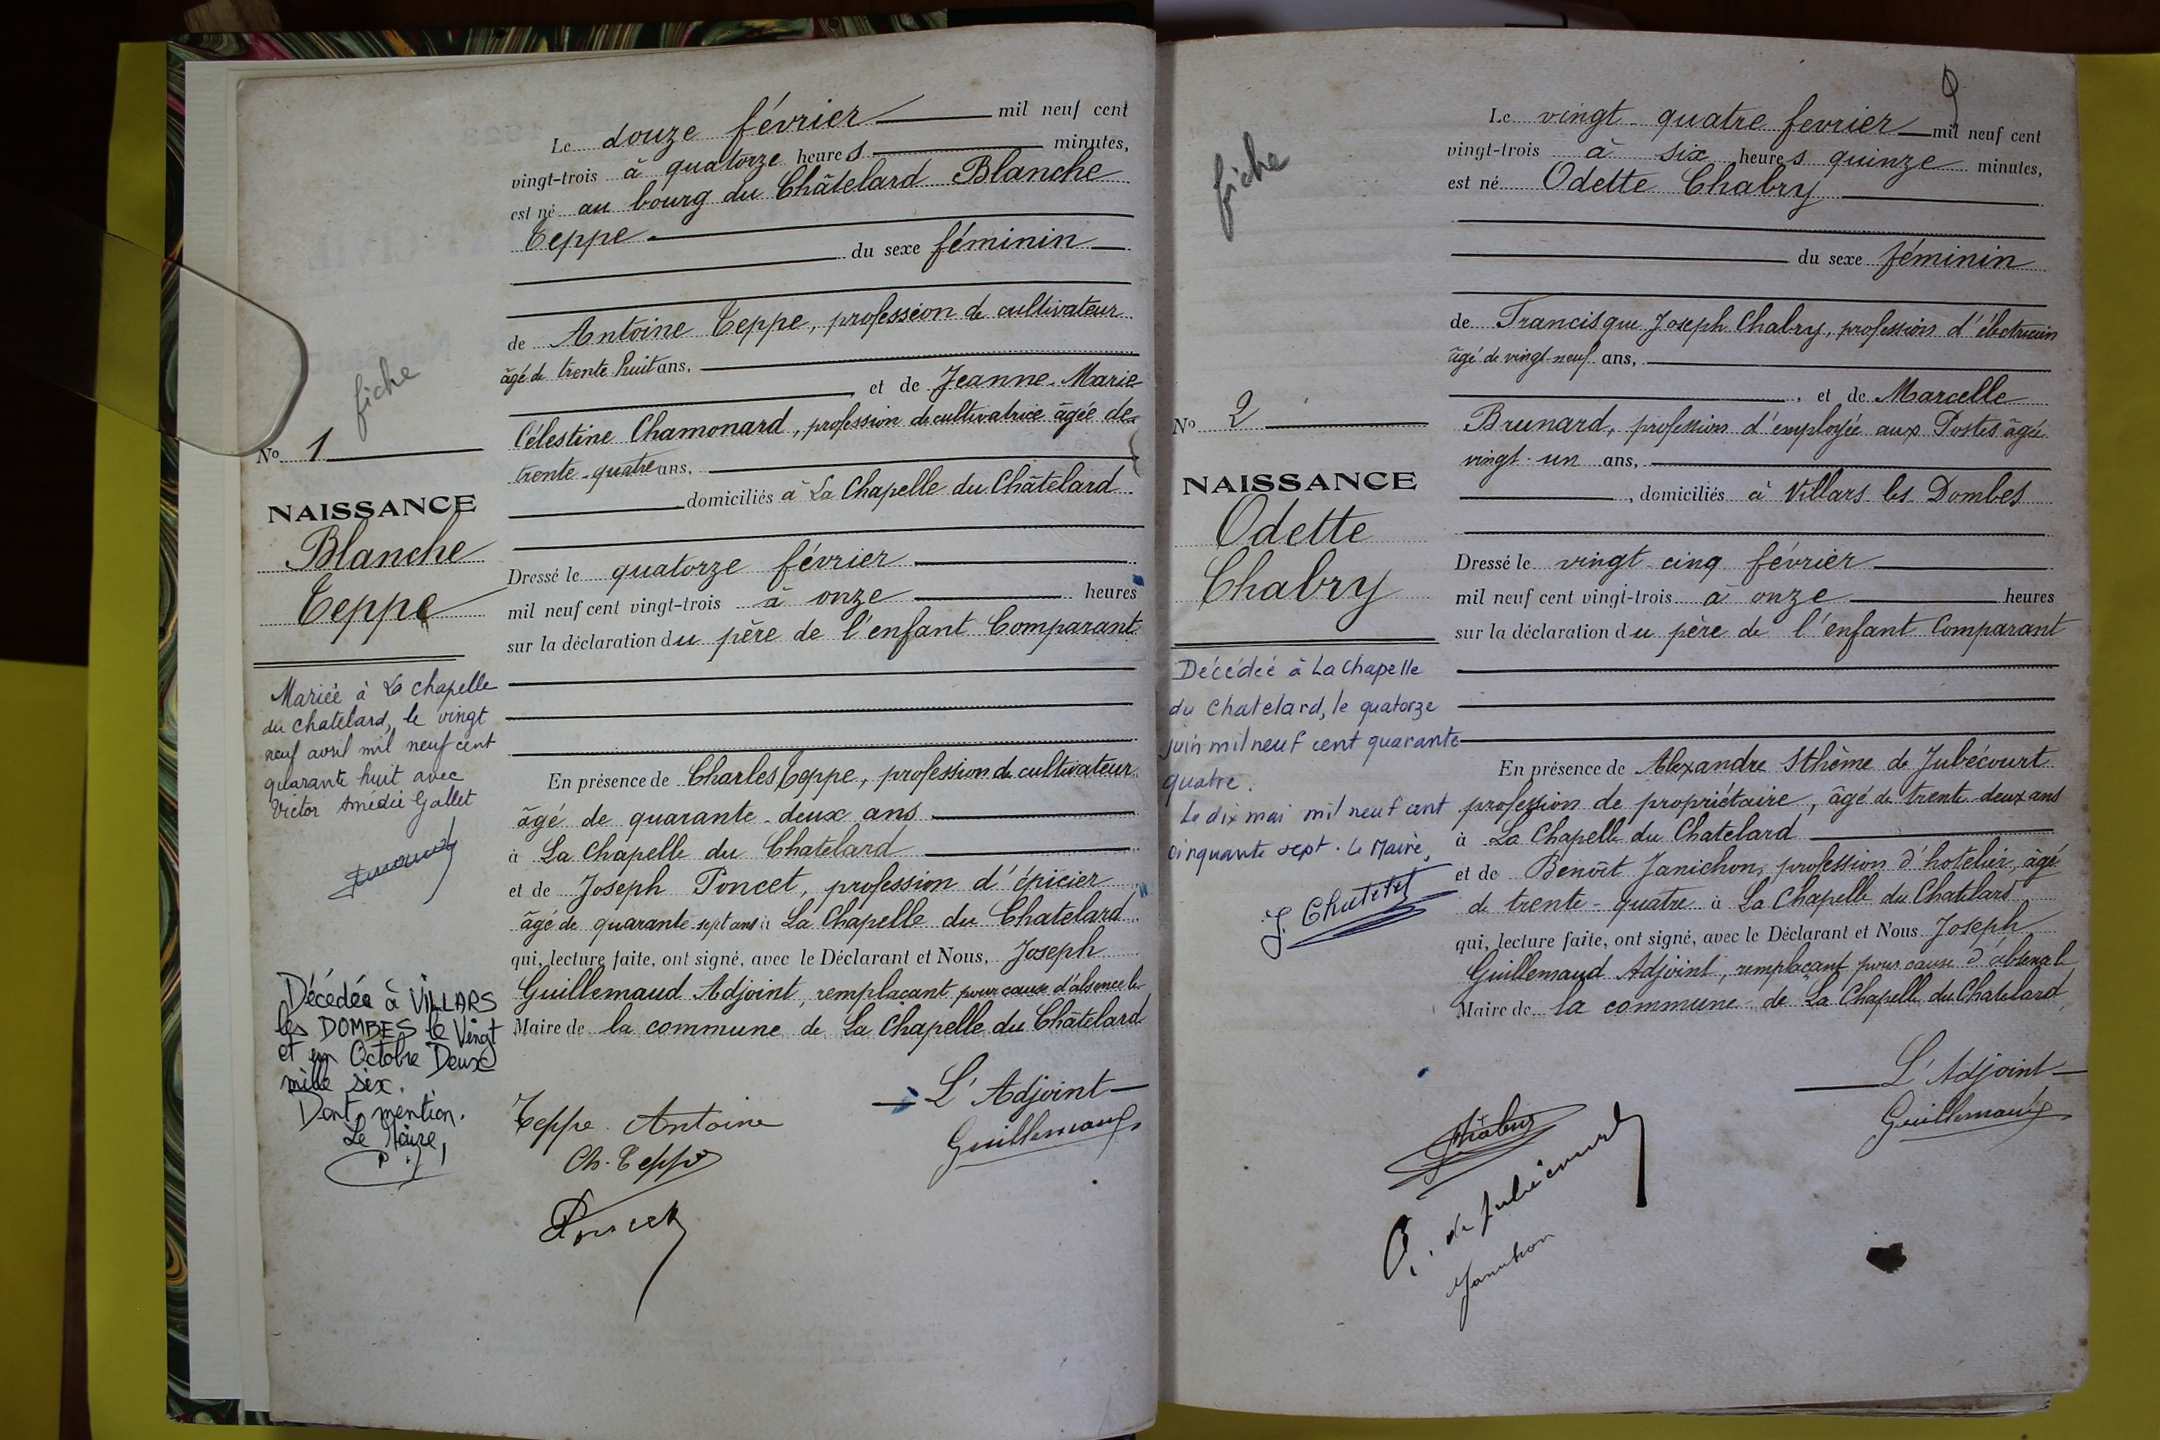 fiche
No 1
NAISSANCE
Blanche
Teppe
Mariée à La chapelle
du chatelard, le vingt
neuf avril mil neuf cent
quarante huit avec
Victor Amédée Gallet
Décédée à VILLARS
les DOMBES le Vingt
et un Octobre Deux
mille six.
Dont mention.
Le Maire,
Le douze février mil neuf cent
vingt-trois à quatorze heures minutes,
est né au bourg du Châtelard Blanche
Teppe
du sexe féminin
de Antoine Teppe, profession de cultivateur
âgé de trente huit ans,
et de Jeanne-Marie
Célestine Chamonard, profession de cultivatrice âgée de
trente-quatre ans,
domiciliés à La Chapelle du Châtelard
Dressé le quatorze février
mil neuf cent vingt-trois à onze heures
sur la déclaration du père de l'enfant Comparant
En présence de Charles Teppe, profession de cultivateur
âgé de quarante-deux ans
à La Chapelle du Chatelard
et de Joseph Poncet, profession d'épicier
âgé de quarante-sept ans à La Chapelle du Chatelard
qui, lecture faite, ont signé, avec le Déclarant et Nous, Joseph
Guillemaud Adjoint, remplacant pour cause d'absence le
Maire de la commune de La Chapelle du Châtelard
L'Adjoint
Teppe Antoine
Guillemaud
Ch. Teppe
Poncet
2
fiche
No 2
NAISSANCE
Odette
Chabry
Décédée à La Chapelle
du Chatelard, le quatorze
juin mil neuf cent quarante
quatre.
Le dix mai mil neuf cent
cinquante sept. Le Maire,
Le vingt-quatre fevrier mil neuf cent
vingt-trois à six heures quinze minutes,
est né Odette Chabry
du sexe féminin
de Francisque Joseph Chabry, profession d'électricien
âgé de vingt-neuf ans,
, et de Marcelle
Brunard, profession d'employée aux Postes âgée
vingt-un ans,
, domiciliés à Villars les Dombes
Dressé le vingt-cinq février
mil neuf cent vingt-trois à onze heures
sur la déclaration du père de l'enfant Comparant
En présence de Alexandre Sthème de Jubécourt
profession de propriétaire, âgé de trente deux ans
à La Chapelle du Chatelard
et de Benoît Janichon, profession d'hotelier, âgé
de trente-quatre à La Chapelle du Chatelard
qui, lecture faite, ont signé, avec le Déclarant et Nous Joseph
Guillemaud Adjoint, remplaçant pour cause d'absence le
Maire de la commune de La Chapelle du Chatelard
L'Adjoint
Chabry
Guillemaud
de Jubécourt
Janichon